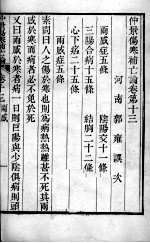 仲景傷寒補亡論卷第十三
河南郭雍撰次
兩感症五條 陰陽交十一條
三陽合病六條 結胸二十二條
心下痞二十五條
兩感症五條
素問曰人之傷於寒也則為病熱熱雖甚不死其兩
感於寒而病者必不免於死
又曰兩感於寒者病一日則巨陽與少陰俱病則頭